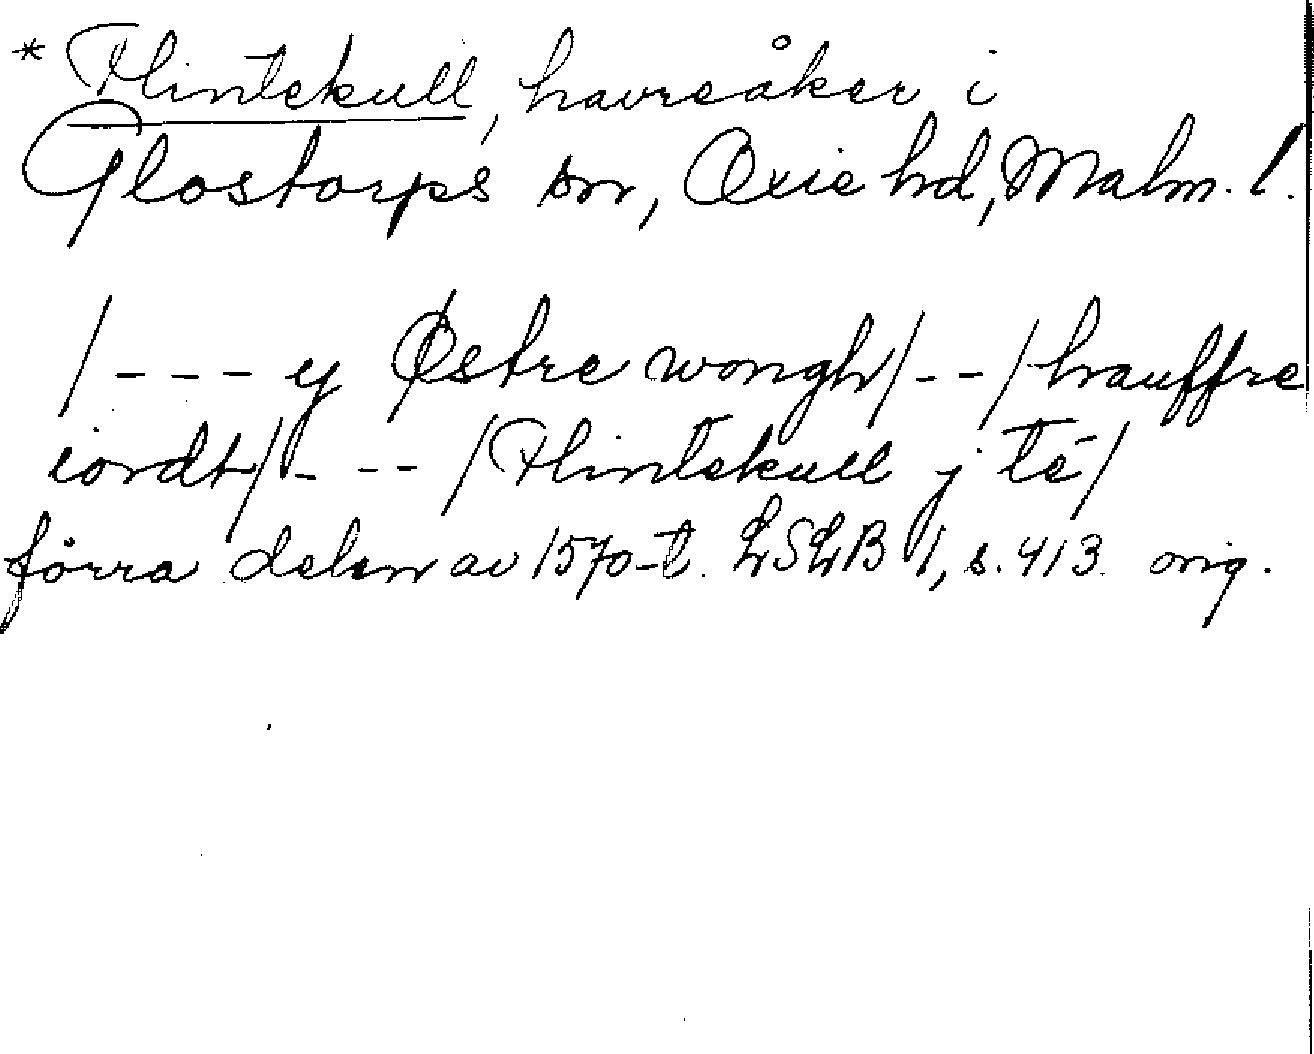 * Flintekull, havreåker i
Glostorps sn, Oxie hd, Malm. l.
/--- y Østre wongh/--/hauffre
iordt/---/Flintekull j té/
förra delen av 1570-t. LSLB 1, s. 413 orig.